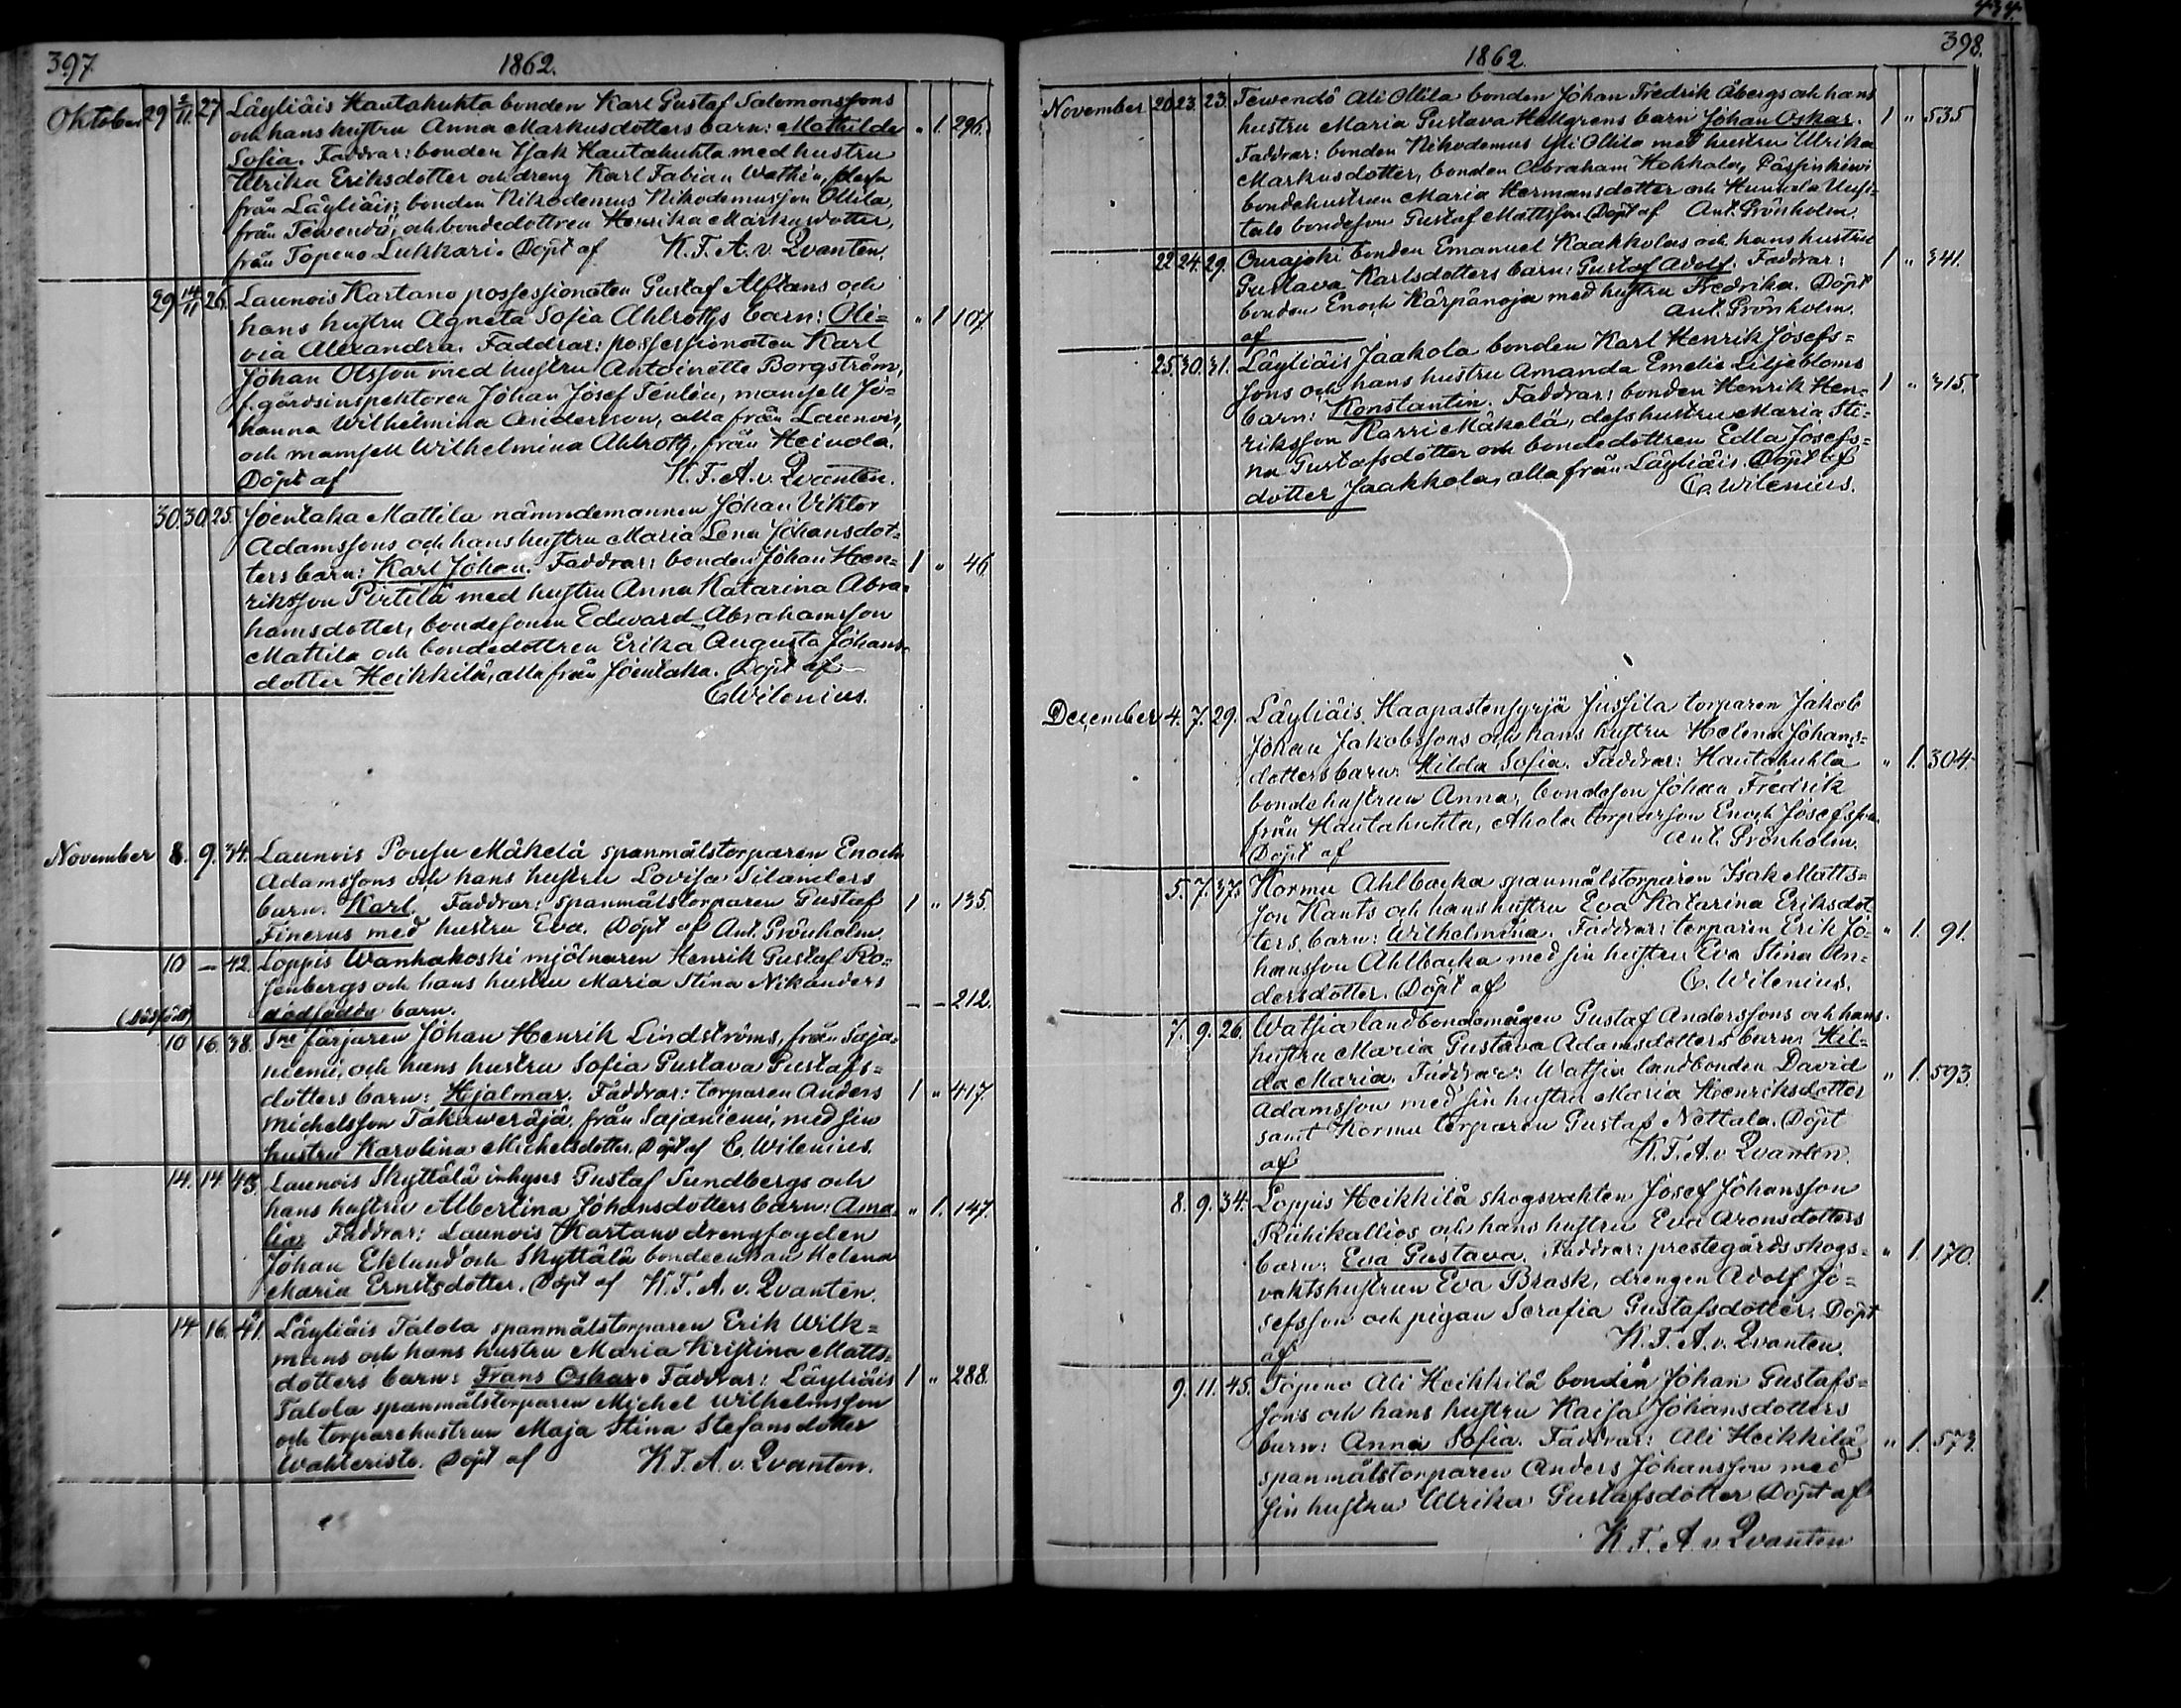 434.
397
1862.
Oktober 29 2/11. 27 Läyliäis Hautakuhta bonden Karl Gustaf Salomonssons
och hans hustru Anna Markusdotters barn: Mathilda " 1. 296.
Sofia. Faddrar: bonden Isak Hautakuhta med hustru
Ulrika Eriksdotter och dreng Karl Fabian Wathén, dessa
från Läyliäis; bonden Nikodemus Nikodemusson Ollila,
från Tewendö, och bondedottren Henrika Markusdotter,
från Topeno Lukkari. Döpt af K. F. A. v. Qvanten.
29 14/11 26. Launois Kartano possessionaten Gustaf Alftans och
hans hustru Agneta Sofia Ahlroths barn: Oli= " 1 107.
via Alexandra. Faddrar: possessionaten Karl
Johan Olsson med hustru Antoinette Borgström,
f. gårdsinspektoren Johan Josef Tenlén, mamsell Jo=
hanna Wilhelmina Anderson, alla från Launois,
och mamsell Wilhelmina Ahlroth, från Heinola.
Döpt af K. F. A. v. Qvanten.
30. 30. 25. Joentaka Mattila nämndemannen Johan Viktor
Adamssons och hans hustru Maria Lena Johansdot=
ters barn: Karl Johan. Faddrar: bonden Johan Hen= 1 " 46.
riksson Pirtilä med hustru Anna Katarina Abra=
hamsdotter, bondesonen Edward Abrahamsson
Mattila och bondedottren Erika Augusta Johans=
dotter Heikkilä, alla från Joentaka. Döpt af
C. Wilenius.
November 8. 9. 34. Launois Pousu Mäkelä spanmålstorparen Enoch
Adamssons och hans hustru Lovisa Silanders
barn: Karl. Faddrar: spanmålstorparen Gustaf 1 " 135.
Finerus med hustru Eva. Döpt af Ant. Grönholm.
10 — 42. Loppis Wanhakoski mjölnaren Henrik Gustaf Ro=
senbergs och hans hustru Maria Stina Nikanders
(dödfödt) dödfödda barn. — — 212.
10 16. 38. Sne färjaren Johan Henrik Lindströms, från Saja=
niemi, och hans hustru Sofia Gustava Gustafs=
dotters barn: Hjalmar. Faddrar: torparen Anders 1 " 417.
Michelsson Takaweräjä, från Sajaniemi, med sin
hustru Karolina Michelsdotter. Döpt af C. Wilenius.
14. 14. 43. Launois Skyttälä inhyses Gustaf Sundbergs och
hans hustru Albertina Johansdotters barn: Ama= " 1. 147.
lia. Faddrar: Launois Kartano drengfogden
Johan Eklund och Skyttälä bondeenkan Helena
Maria Ernstsdotter. Döpt af K. F. A. v. Qvanten.
14 16. 41. Läyliäis Talola spanmålstorparen Erik Wilk=
mans och hans hustru Maria Kristina Matts=
dotters barn: Frans Oskar. Faddrar: Läyliäis 1 " 288.
Talola spanmålstorparen Michel Wilhelmsson
och torparehustrun Maja Stina Stefansdotter
Wahteristo. Döpt af K. F. A. v. Qvanten.
1862.
398.
November 20. 23. 23. Tewendö Ali Ollila bonden Johan Fredrik Åbergs och hans
hustru Maria Gustava Hellgrens barn Johan Oskar. 1 " 535
Faddrar: bonden Nikodemus Yli Ollila med hustru Ulrika
Markusdotter, bonden Abraham Hokkala,
bondehustrun Maria Hermansdotter och Hunsala Uusi=
talo bondeson Gustaf Mattsson. Döpt af Ant. Grönholm.
22 24. 29. Ourajoki bonden Emanuel Kaakkolas och hans hustru
Gustava Karlsdotters barn: Gustaf Adolf. Faddrar: 1 " 341.
bonden Enoch Kärpänoja med hustru Fredrika. Döpt
af Ant. Grönholm.
25. 30. 31. Läyliäis Jaakola bonden Karl Henrik Josefs=
sons och hans hustru Amanda Emelie Liljebloms
barn: Konstantin. Faddrar: bonden Henrik Hen= 1 " 315.
riksson Karri Mäkelä, dess hustru Maria Sti=
na Gustafsdotter och bondedottren Edla Josefs=
dotter Jaakkola, alla från Läyliäis. Döpt af
C. Wilenius.
December 4. 7. 29. Läyliäis Haapastensyrjä Jussila torparen Jakob
Johan Jakobssons och hans hustru Helena Johans=
dotters barn: Hilda Sofia. Faddrar: Hautakuhta " 1. 304.
bondehustrun Anna, bondeson Johan Fredrik
från Hautakuhta, Ahola torpareson Enoch Josefsson.
Döpt af Ant. Grönholm.
5. 7. 37. Kormu Ahlbacka spanmålstorparen Isak Matts=
son Kants och hans hustru Eva Katarina Eriksdot
ters barn: Wilhelmina. Faddrar: torparen Erik Jo= " 1. 91.
hansson Ahlbacka med sin hustru Eva Stina An=
dersdotter. Döpt af C. Wilenius.
7. 9. 26. Watsia landbondemågen Gustaf Anderssons och hans
hustru Maria Gustava Adamsdotters barn: Hil=
da Maria. Faddrar: Watsia landbonden David " 1. 593.
Adamsson med sin hustru Maria Henriksdotter
samt Kormu torparen Gustaf Nettala. Döpt
af K. F. A. v. Qvanten.
8. 9. 34. Loppis Heikkilä skogsvakten Josef Johansson
Riihikallios och hans hustru Eva Aronsdotters
barn: Eva Gustava. Faddrar: prestegårds skogs= " 1. 170.
vaktshustrun Eva Brask, drengen Adolf Jo=
sefsson och pigan Serafia Gustafsdotter. Döpt
af K. F. A. v. Qvanten.
9. 11. 45. Topeno Ali Heikkilä bonden Johan Gustafs=
sons och hans hustru Kaisa Johansdotters
barn: Anna Sofia. Faddrar: Ali Heikkilä " 1. 573.
spanmålstorparen Anders Johansson med
sin hustru Ulrika Gustafsdotter. Döpt af
K. F. A. v. Qvanten